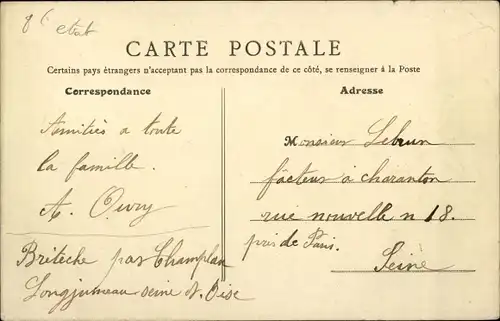 8 6
etat
CARTE POSTALE
Certains pays étrangers n'acceptant pas la correspondance de ce côté, se renseigner à la Poste
Correspondance
Amitiés a toute
la famille.
A. Oury
Britèche par Champlan
Longjumeau seine & Oise
Adresse
Monsieur Lebrun
facteur à charanton
rue nouvelle n 18.
près de Paris.
Seine